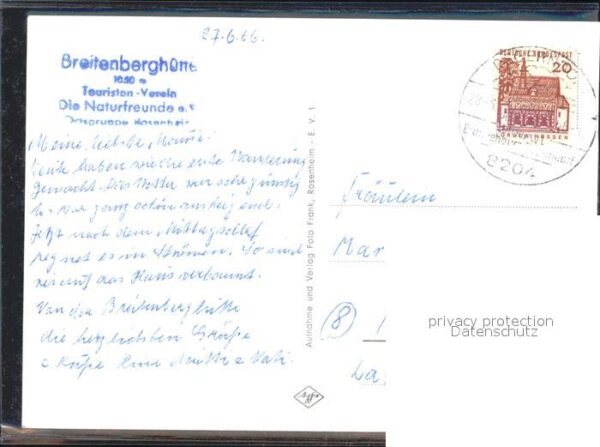 27.6.66.
Breitenberghütte
1050 m
Touristen-Verein
Die Naturfreunde e.V
Ortsgruppe Rosenheim
Meine liebste Mausi!
Heute haben wir die erste Wanderung
gemacht. Das Wetter war sehr günstig
u. war ganz schön ansteigend.
Jetzt nach dem Mittagschlaf
regnet es in Strömen. So sind
wir auf das Haus verbannt.
Von der Breitenberghütte
die herzlichsten Grüße
u. Küße Deine Mutti u. Vati.
Aufnahme und Verlag Foto Frank, Rosenheim - E. V. 1
DEUTSCHE BUNDESPOST
20
LORSCH/HESSEN
8204
Fräulein
Mar
(8)
La
privacy protection
Datenschutz
Agfa